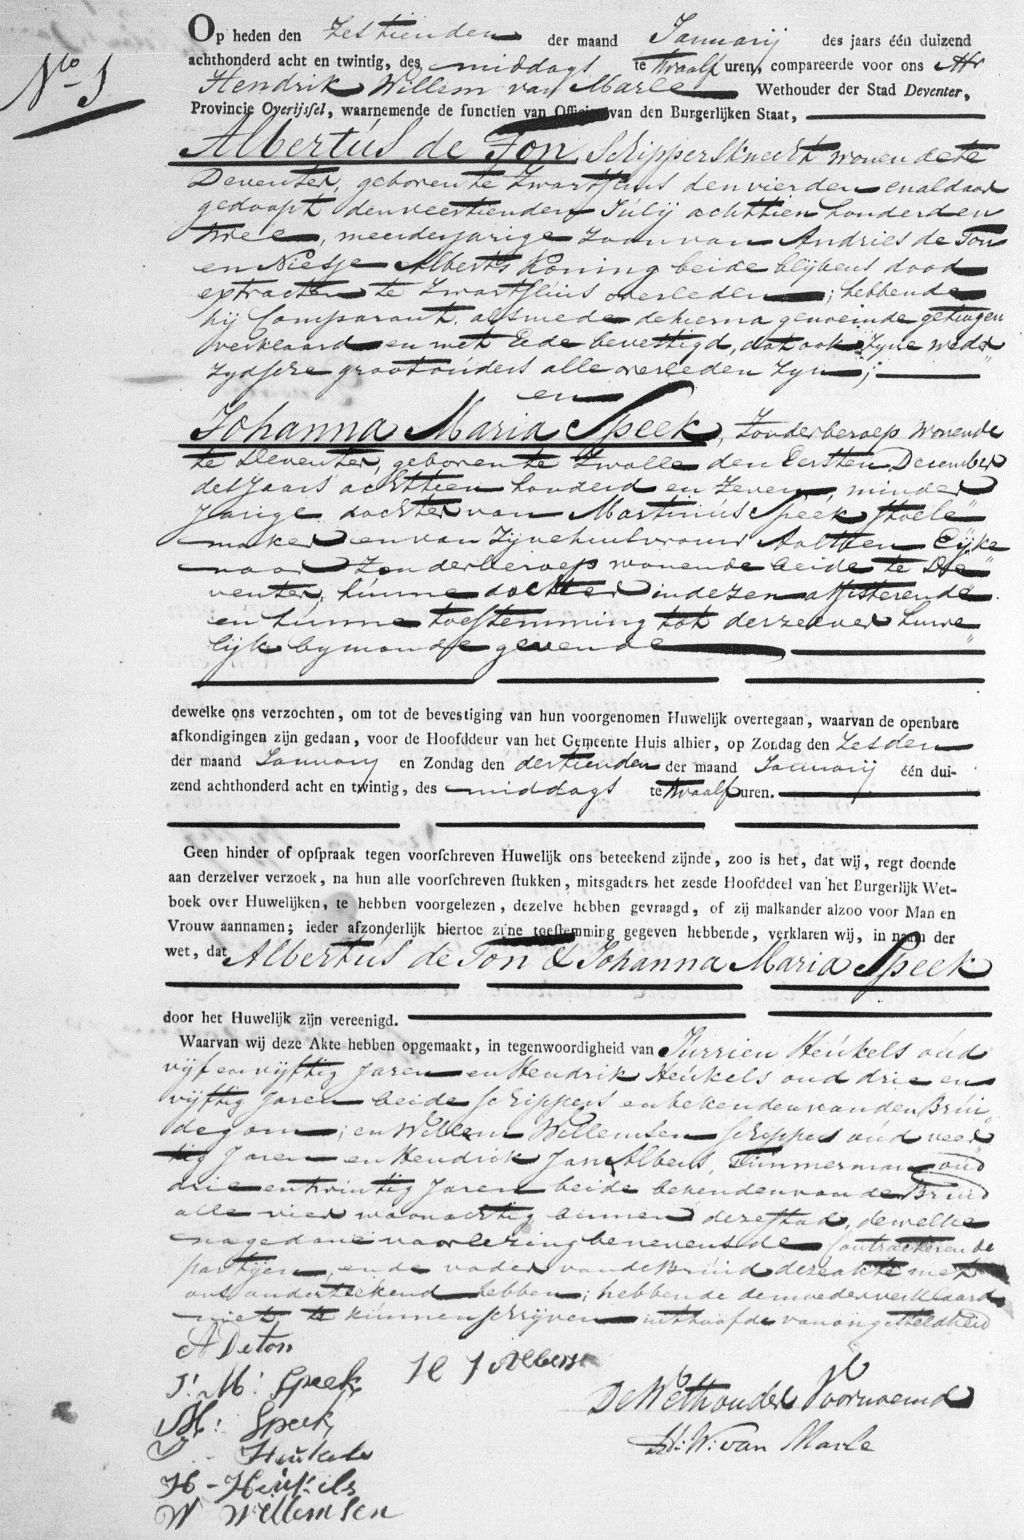 Op heden den zestienden der maand Januarij des jaars één duizend
No. 5
achthonderd acht en twintig, des middags te twaalf uren, compareerde voor ons Mr
Hendrik Willem van Marle Wethouder der Stad Deventer,
Provincie Overijssel, waarnemende de functien van Officier van den Burgerlijken Staat,
Albertus de Ton, Schippersknecht wonende te
Deventer, geboren te Zwartsluis den vierden en aldaar
gedoopt den veertienden Julij achttien honderd en
twee, meerderjarige zoon van Andries de Ton
en Niesje Alberts Koning beide blijkens dood
extracten te Zwartsluis overleden; hebbende
hij Comparant, alsmede de hierna genoemde getuigen
verklaard en met Eede bevestigd, dat ook zyne weder
zydsche grootouders alle overleden zyn;
en
Johanna Maria Speek, zonder beroep wonende
te Deventer, geboren te Zwolle den Eersten December
des jaars achttien honderd en zeven, minder
jarige dochter van Martinus Speek stoele"
maker en van zyne huisvrouw Aaltjen Eijke
naar zonder beroep wonende beide te De"
venter, hunne dochter in dezen assisterende
en hunne toestemming tot derzelver huwe"
lijk by monde gevende
dewelke ons verzochten, om tot de bevestiging van hun voorgenomen Huwelijk overtegaan, waarvan de openbare
afkondigingen zijn gedaan, voor de Hoofddeur van het Gemeente Huis alhier, op Zondag den zesden
der maand January en Zondag den dertienden der maand Januarij één dui-
zend achthonderd acht en twintig, des middags te twaalf uren.
Geen hinder of opspraak tegen voorschreven Huwelijk ons beteekend zijnde, zoo is het, dat wij, regt doende
aan derzelver verzoek, na hun alle voorschreven stukken, mitsgaders het zesde Hoofddeel van het Burgerlijk Wet-
boek over Huwelijken, te hebben voorgelezen, dezelve hebben gevraagd, of zij malkander alzoo voor Man en
Vrouw aannamen; ieder afzonderlijk hiertoe zijne toestemming gegeven hebbende, verklaren wij, in naam der
wet, dat Albertus de Ton & Johanna Maria Speek
door het Huwelijk zijn vereenigd.
Waarvan wij deze Akte hebben opgemaakt, in tegenwoordigheid van Jurrien Heukels oud
vijf en vijftig jaren en Hendrik Heukels oud drie en
vijftig jaren beide schippers en bekenden van den Brui
degom; en Willem Willemsen schipper oud veer"
tig jaren en Hendrik Jan Albers, Timmerman oud
drie en twintig jaren beide bekenden van de Bruid
alle vier woonachtig binnen deze stad, dewelke
na gedane voorlezing benevens de Contracterende
partijen, en de vader van de Bruid deze akte met
ons onderteekend hebben; hebbende de moeder verklaard
niet te kunnen schrijven uit hoofde van ongeleerdheid
A De ton
J: M: Speek H J Albers
M: Speek
J Heukels De Wethouder Voornoemd
H - Heukels H: W: van Marle
W Willemsen